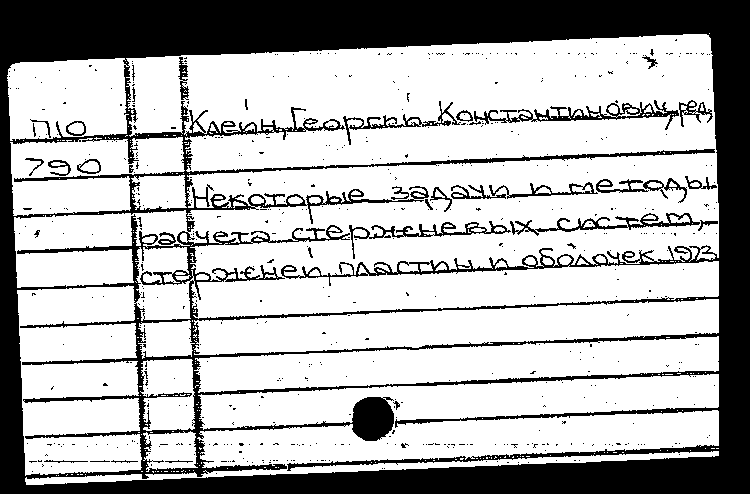 П10 Клейн, Георгий Константинович, ред.
790
Некоторые задачи и методы
расчета стержневых систем,
стержней, пластин и оболочек. 1973